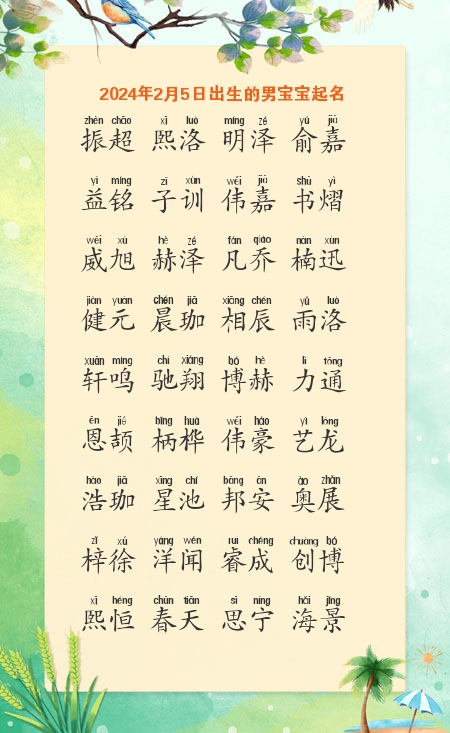 2024年2月5日出生的男宝宝起名
zhèn chāo xī luò míng zé yú jiā
振超 熙洛 明泽 俞嘉
yì míng zǐ xùn wěi jiā shū yì
益铭 子训 伟嘉 书熠
wēi xù hè zé fán qiáo nán xùn
威旭 赫泽 凡乔 楠迅
jiàn yuán chén jiā xiāng chén yǔ luò
健元 晨珈 相辰 雨洛
xuān míng chí xiáng bó hè lì tōng
轩鸣 驰翔 博赫 力通
ēn jié bǐng huà wěi háo yì lóng
恩颉 柄桦 伟豪 艺龙
hào jiā xīng chí bāng ān ào zhǎn
浩珈 星池 邦安 奥展
zǐ xú yáng wén ruì chéng chuàng bó
梓徐 洋闻 睿成 创博
xī héng chūn tiān sī níng hǎi jǐng
熙恒 春天 思宁 海景